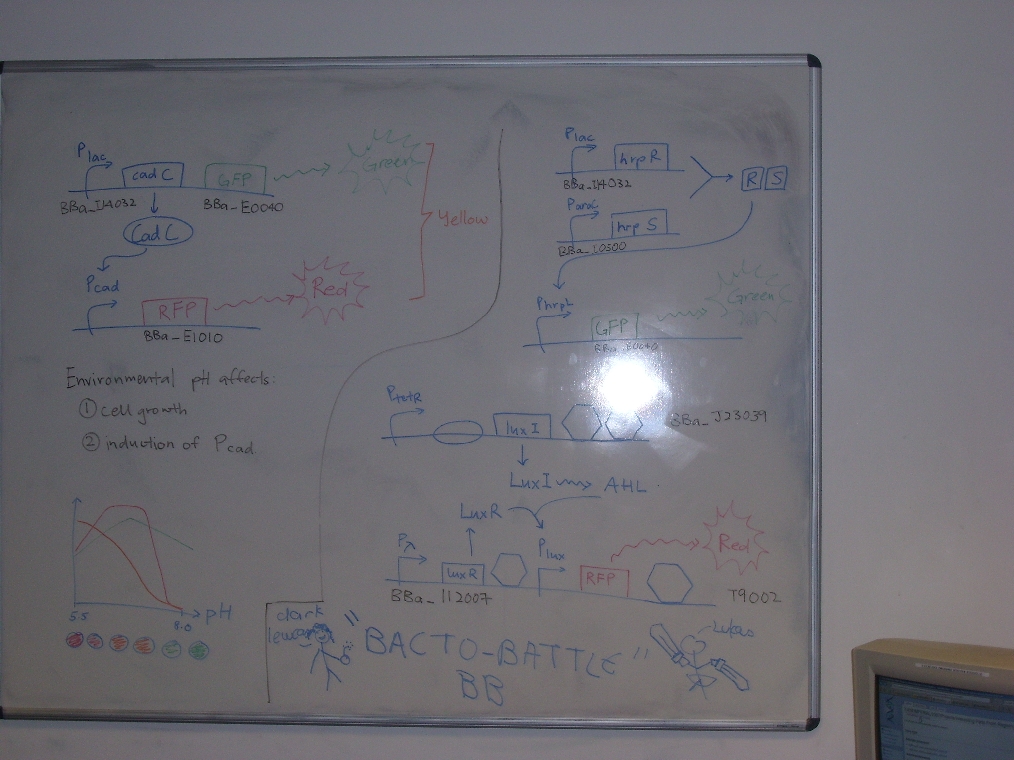 Plac
cad C
GFP
Green
BBa_I14032
BBa_E0040
Cad C
Yellow
Pcad
RFP
Red
BBa_E1010
Environmental pH affects:
① cell growth
② induction of Pcad
5.5
8.0
pH
Plac
hrp R
BBa_I14032
R S
ParaC
hrp S
BBa_I0500
PhrpL
GFP
Green
BBa_E0040
PtetR
lux I
BBa_J23039
Lux I
AHL
Lux R
Pλ
Plux
LuxR
RFP
Red
BBa_I12007
T9002
dark
"BACTO-BATTLE"
BB